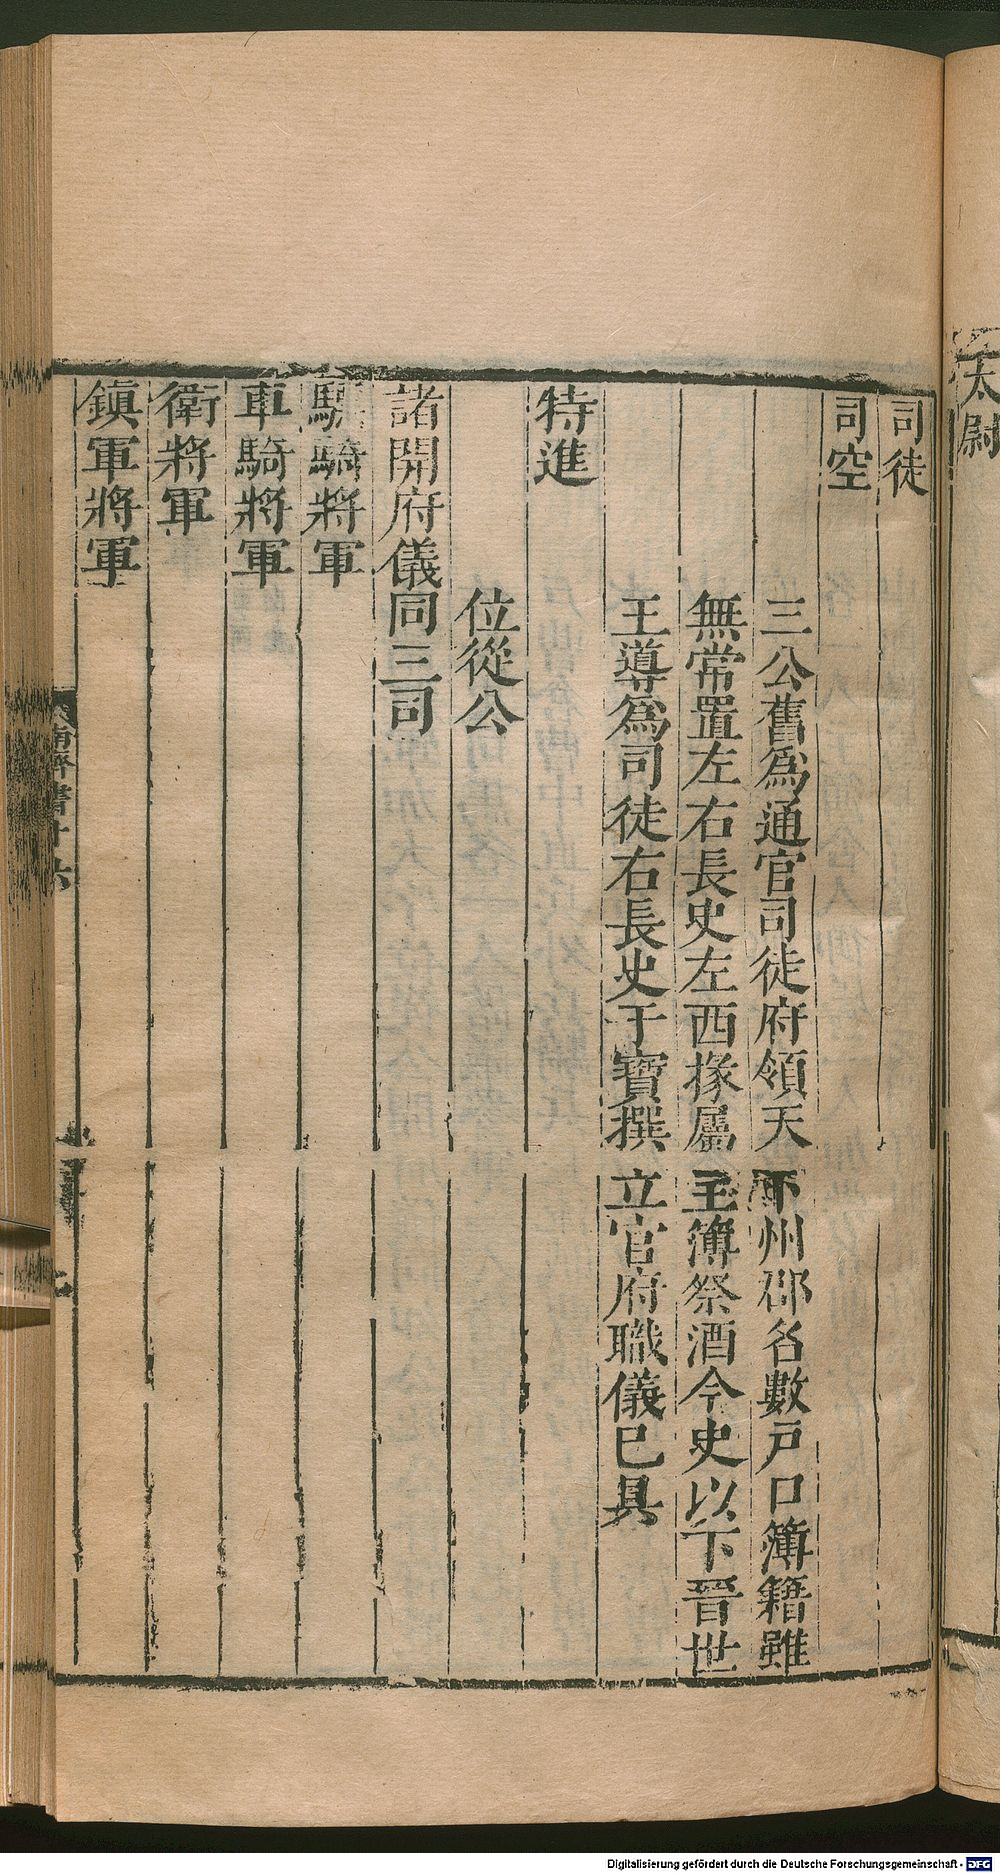 太尉
司徒
司空
三公舊爲通官司徒府領天下州郡名數戸口簿籍雖
無常置左右長史左西掾屬主簿祭酒令史以下晉世
王導爲司徒右長史于寶撰立官府職儀已具
特進
位從公
諸開府儀同三司
驃騎將軍
車騎將軍
衛將軍
鎮軍將軍
南齊書十六
Digitalisierung gefördert durch die Deutsche Forschungsgemeinschaft - DFG